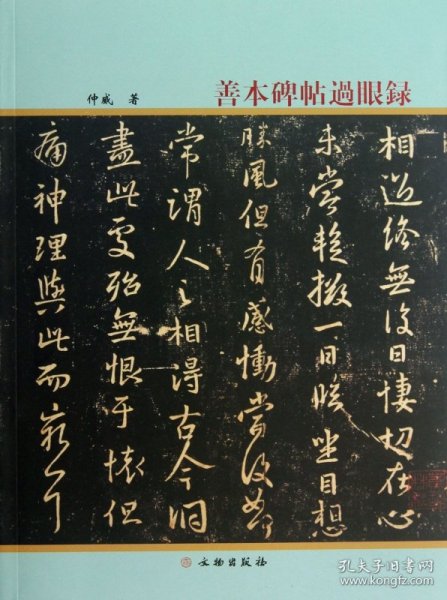 善本碑帖過眼録
仲威 著
相過終無復日悽切在心
未嘗暫撥一日臨坐目想
勝風但有感慟當復如何
常謂人之相得古今洞
盡此處殆無恨于懷但
痛神理與此而窮耳
文物出版社
孔夫子旧书网
www.kongfz.com